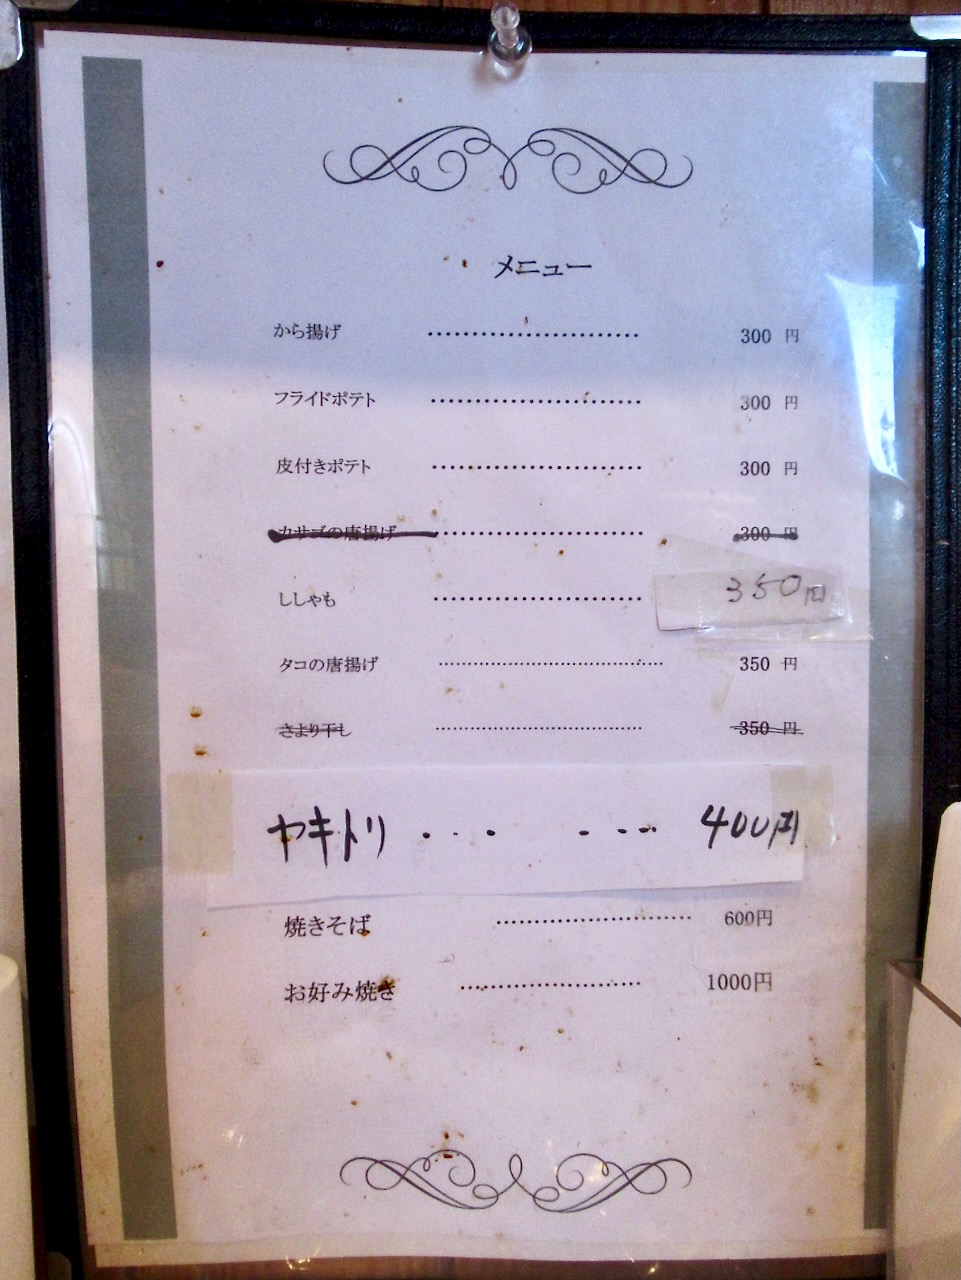 メニュー
から揚げ ........................ 300 円
フライドポテト ........................ 300 円
皮付きポテト ........................ 300 円
カサゴの唐揚げ ........................ 300 円
ししゃも ........................ 350円
タコの唐揚げ ........................ 350 円
さより干し ........................ 350 円
ヤキトリ ・・・ ・・・・ 400円
焼きそば ........................ 600円
お好み焼き ........................ 1000円